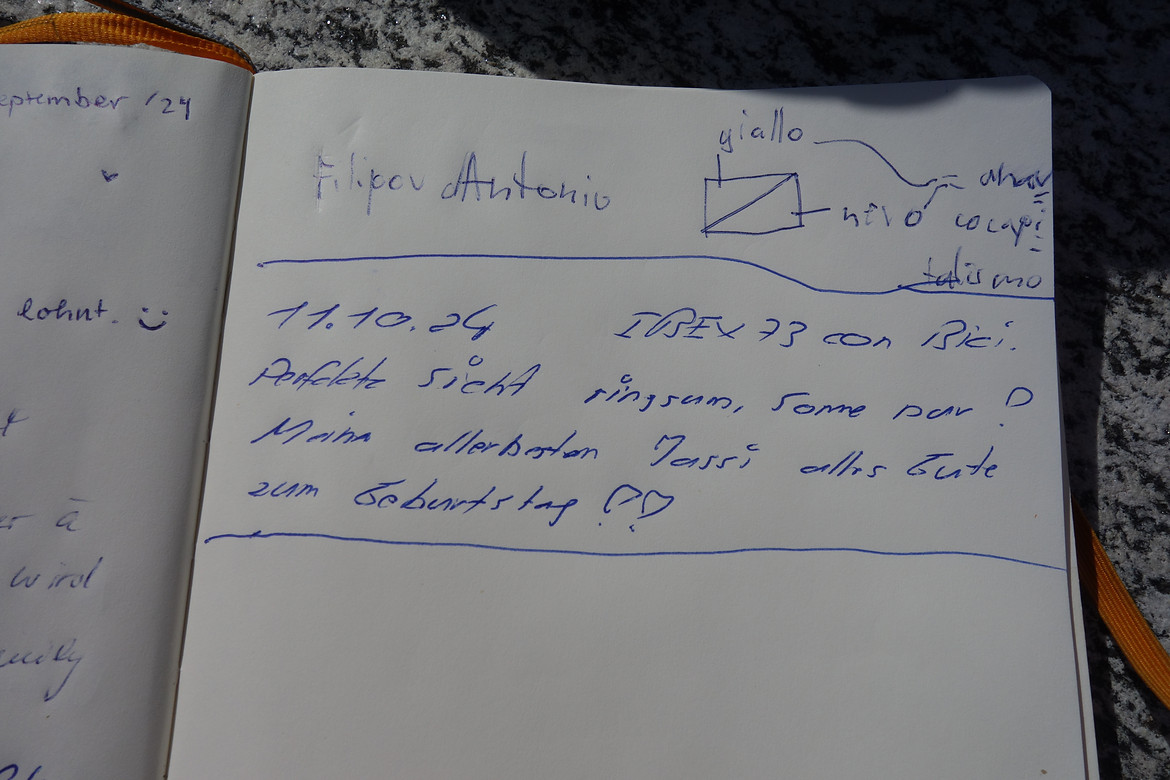 eptember '24
lohnt.
wird
Filipov dAntonio
giallo
nero
cocapi
talismo
11.10.24 IBEX 73 con Bici.
Perfekte Sicht ringsum, Sonne pur
Meinr allerbesten Jassi alles Gute
zum Geburtstag